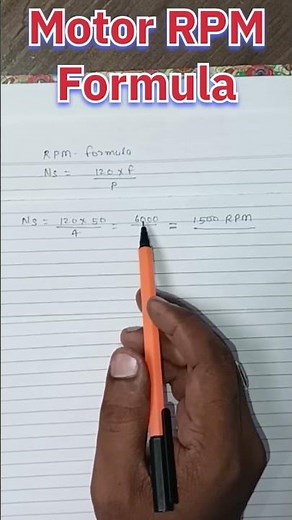 Motor RPM
Formula
RPM - formula
Ns = 120 x f
P
Ns = 120 x 50 = 6000 = 1500 RPM
4